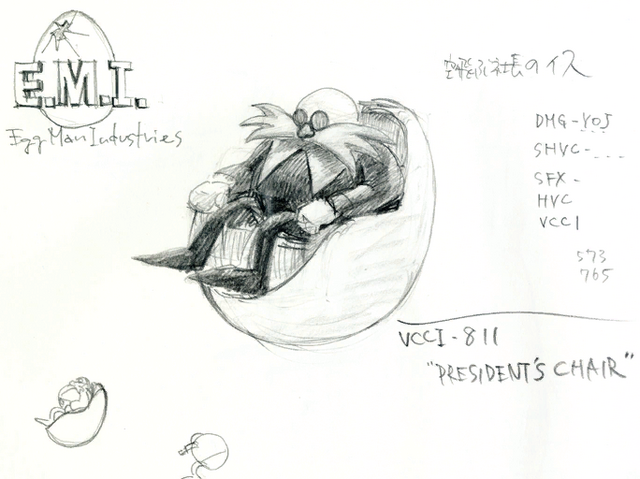 E.M.I.
EggManIndustries
空飛ぶ社長のイス
DMG-YOJ
SHVC-...
SFX-
HVC
VCCI
573
765
VCCI-811
"PRESIDENT'S CHAIR"